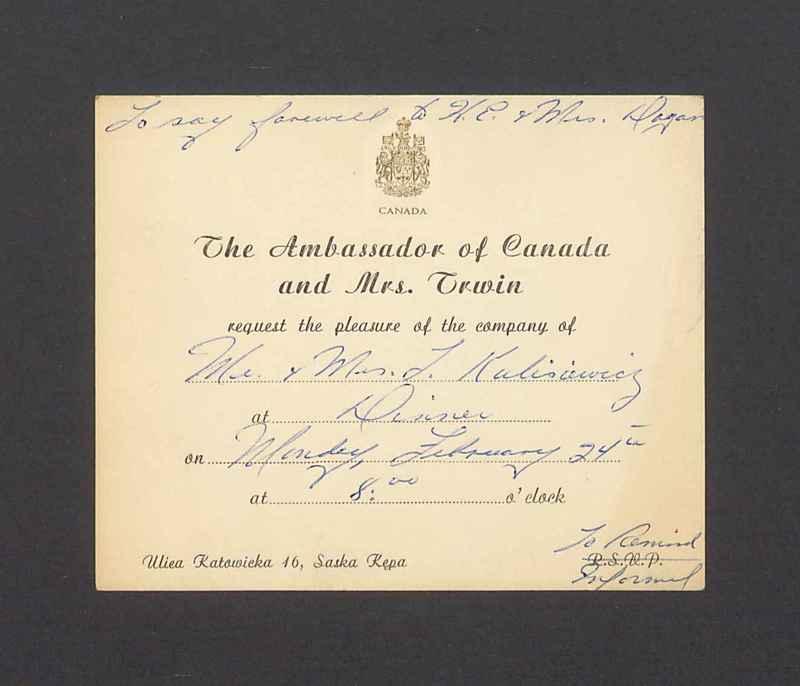 To say farewell to H.E. & Mrs. Dogan
CANADA
The Ambassador of Canada
and Mrs. Irwin
request the pleasure of the company of
Mr. & Mrs. J. Kulisiewicz
at Dinner
on Monday, February 24th
at 8:00 o'clock
To Remind
Ulica Katowicka 16, Saska Kępa R.S.V.P.
Informal